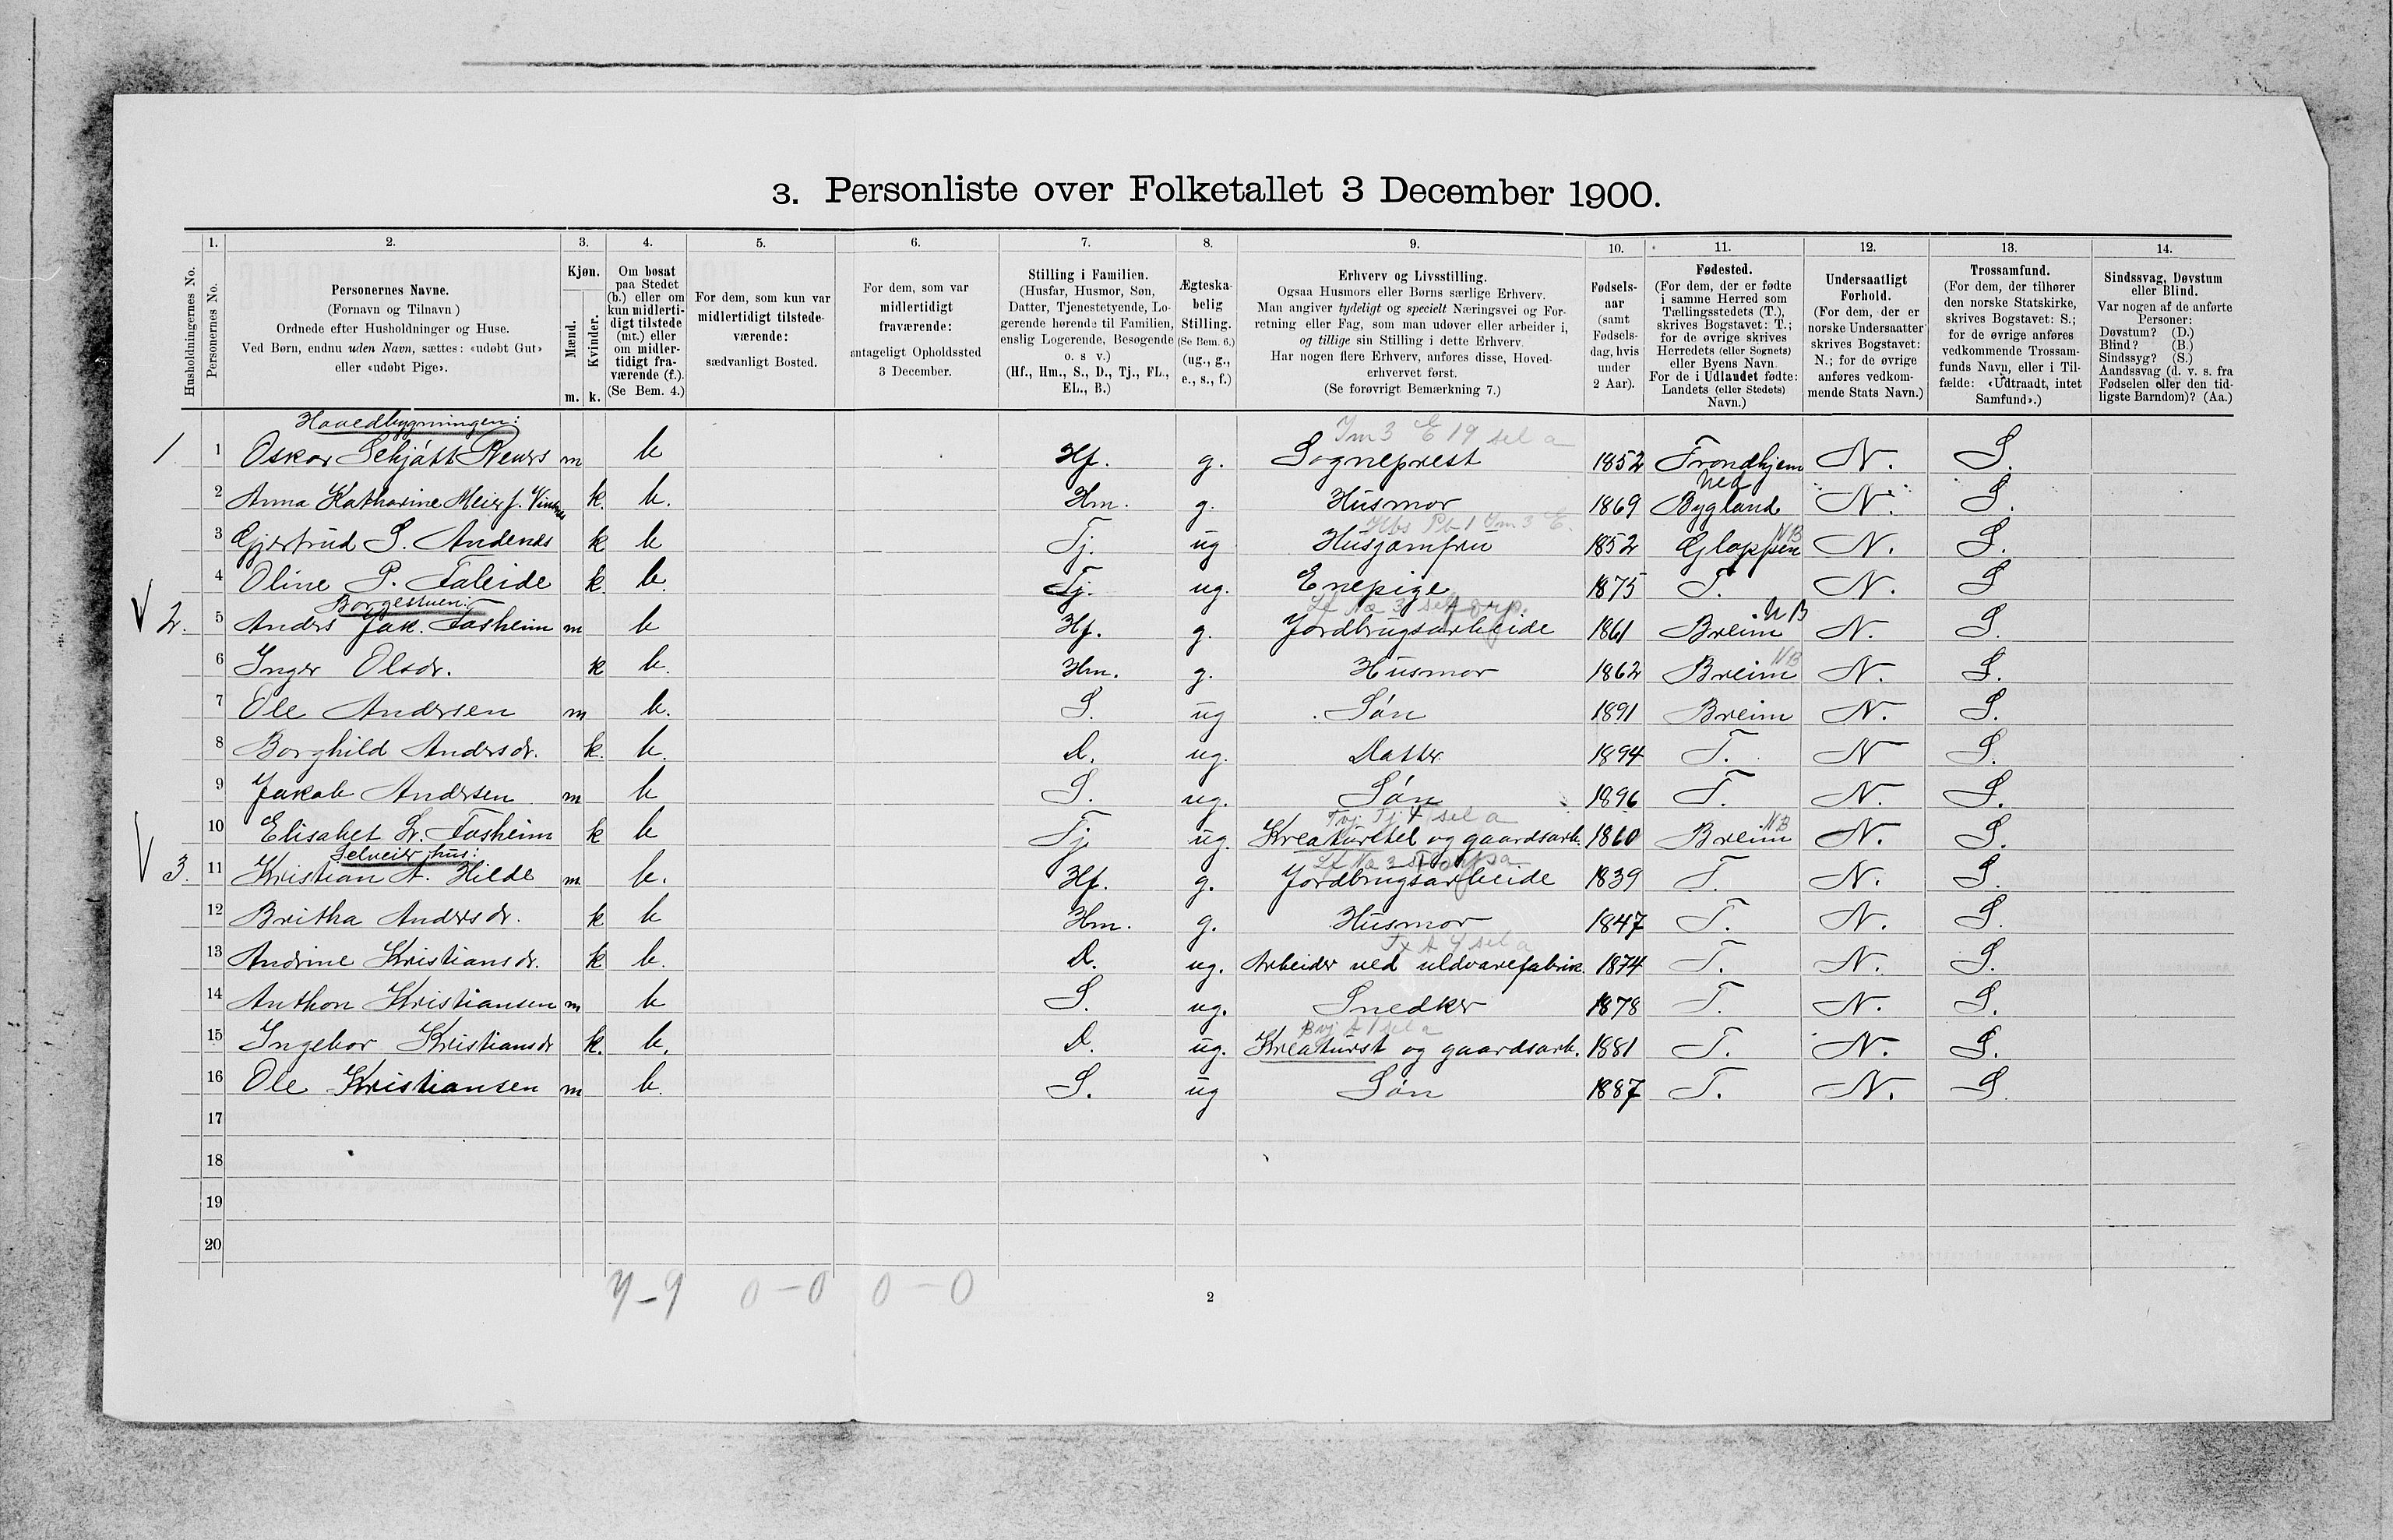 3. Personliste over Folketallet 3 December 1900.
1. 2. 3. 4. 5. 6. 7. 8. 9. 10. 11. 12. 13. 14.
Husholdningernes No.
Personernes No.
Personernes Navne.
(Fornavn og Tilnavn)
Ordnede efter Husholdninger og Huse.
Ved Børn, endnu uden Navn, sættes: «udøbt Gut»
eller «udøbt Pige».
Kjøn.
Mænd.
Kvinder.
m. k.
Om bosat
paa Stedet
(b.) eller om
kun midlerti-
digt tilstede
(mt.) eller
om midler-
tidigt fra-
værende (f.).
(Se Bem. 4.)
For dem, som kun var
midlertidigt tilstede-
værende:
sædvanligt Bosted.
For dem, som var
midlertidigt
fraværende:
antageligt Opholdssted
3 December.
Stilling i Familien.
(Husfar, Husmor, Søn,
Datter, Tjenestetyende, Lo-
gerende hørende til Familien,
enslig Logerende, Besøgende
o. s v.)
(Hf., Hm., S., D., Tj., FL.,
EL., B.)
Ægteska-
belig
Stilling.
(Se Bem. 6.)
(ug., g.,
e., s., f.)
Erhverv og Livsstilling.
Ogsaa Husmors eller Børns særlige Erhverv.
Man angiver tydeligt og specielt Næringsvei og For-
retning eller Fag, som man udøver eller arbeider i,
og tillige sin Stilling i dette Erhverv.
Har nogen flere Erhverv, anføres disse, Hoved-
erhvervet først.
(Se forøvrigt Bemærkning 7.)
Fødsels-
aar
(samt
Fødsels-
dag, hvis
under
2 Aar).
Fødested.
(For dem, der er fødte
i samme Herred som
Tællingsstedets (T.),
skrives Bogstavet: T.;
for de øvrige skrives
Herredets (eller Sognets)
eller Byens Navn.
For de i Udlandet fødte:
Landets (eller Stedets)
Navn.)
Undersaatligt
Forhold.
(For dem, der er
norske Undersaatter
skrives Bogstavet:
N.; for de øvrige
anføres vedkom-
mende Stats Navn.)
Trossamfund.
(For dem, der tilhører
den norske Statskirke,
skrives Bogstavet: S.;
for de øvrige anføres
vedkommende Trossam-
funds Navn, eller i Til-
fælde: «Udtraadt, intet
Samfund».)
Sindssvag, Døvstum
eller Blind.
Var nogen af de anførte
Personer:
Døvstum? (D.)
Blind? (B.)
Sindssyg? (S.)
Aandssvag (d. v. s. fra
Fødselen eller den tid-
ligste Barndom)? (Aa.)
Hovedbygningen: Im 3 E 19 sel a
1 1 Oskar m b Hf. g. Sogneprest 1852 Trondhjem N. S.
2 Anna Katharine Meier f. k. b. Hm. g. Husmor 1869 Bygland N. S.
3 Gjertrud S. Andenæs k b Tj. ug Husjomfru 1852 Gloppen NB N. S.
4 Oline P. Faleide k. b. Tj. ug. Enepige 1875 T. N. S
Borgestuen:
2. 5 Anders Jak. Fosheim m b Hf. g. Jordbrugsarbeide 1861 Breim NB N. S.
6 Inger Olsdr. k b. Hm. g. Husmor 1862 Breim NB N. S.
7 Ole Andersen m b. S. ug Søn 1891 Breim N. S.
8 Borghild Andersdr. k. b. D. ug. Datter 1894 T. N S.
9 Jakob Andersen m b S. ug. Søn 1896 T. N. S.
10 Elisabet Fosheim k b Tj ug. Kreaturstel og gaardsarb. 1860 Breim NB N. S.
Selveier hus:
3. 11 Kristian A. Hilde m b. Hf. g. Jordbrugsarbeide 1839 T. N. S.
12 Britha Andersdr. k b Hm. g. Husmor 1847 T. N. S.
13 Andrine Kristiansdr. k b. D. ug. Arbeider ved uldvarefabrik. 1874 T. N. S.
14 Anthon Kristiansen m b S. ug. Snedker 1878 T. N. S.
15 Ingebor Kristiansdr k. b. D. ug. Kreaturst og gaardsarb. 1881 T. N. S.
16 Ole Kristiansen m b. S. ug Søn 1887 T. N. S.
17
18
19
20
7-9 0-0 0-0
2